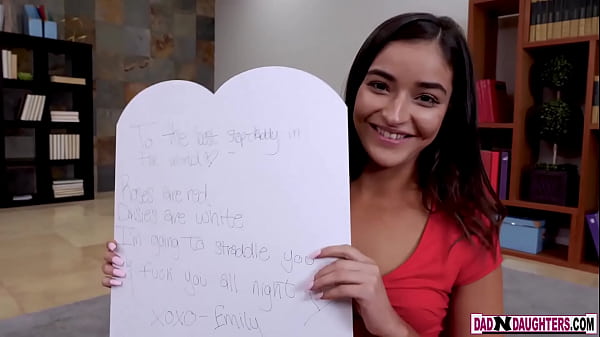 To the best step-daddy in
the world! -
Roses are red,
Daisies are white
I'm going to straddle you
& fuck you all night
xoxo-Emily
DADNDAUGHTERS.COM